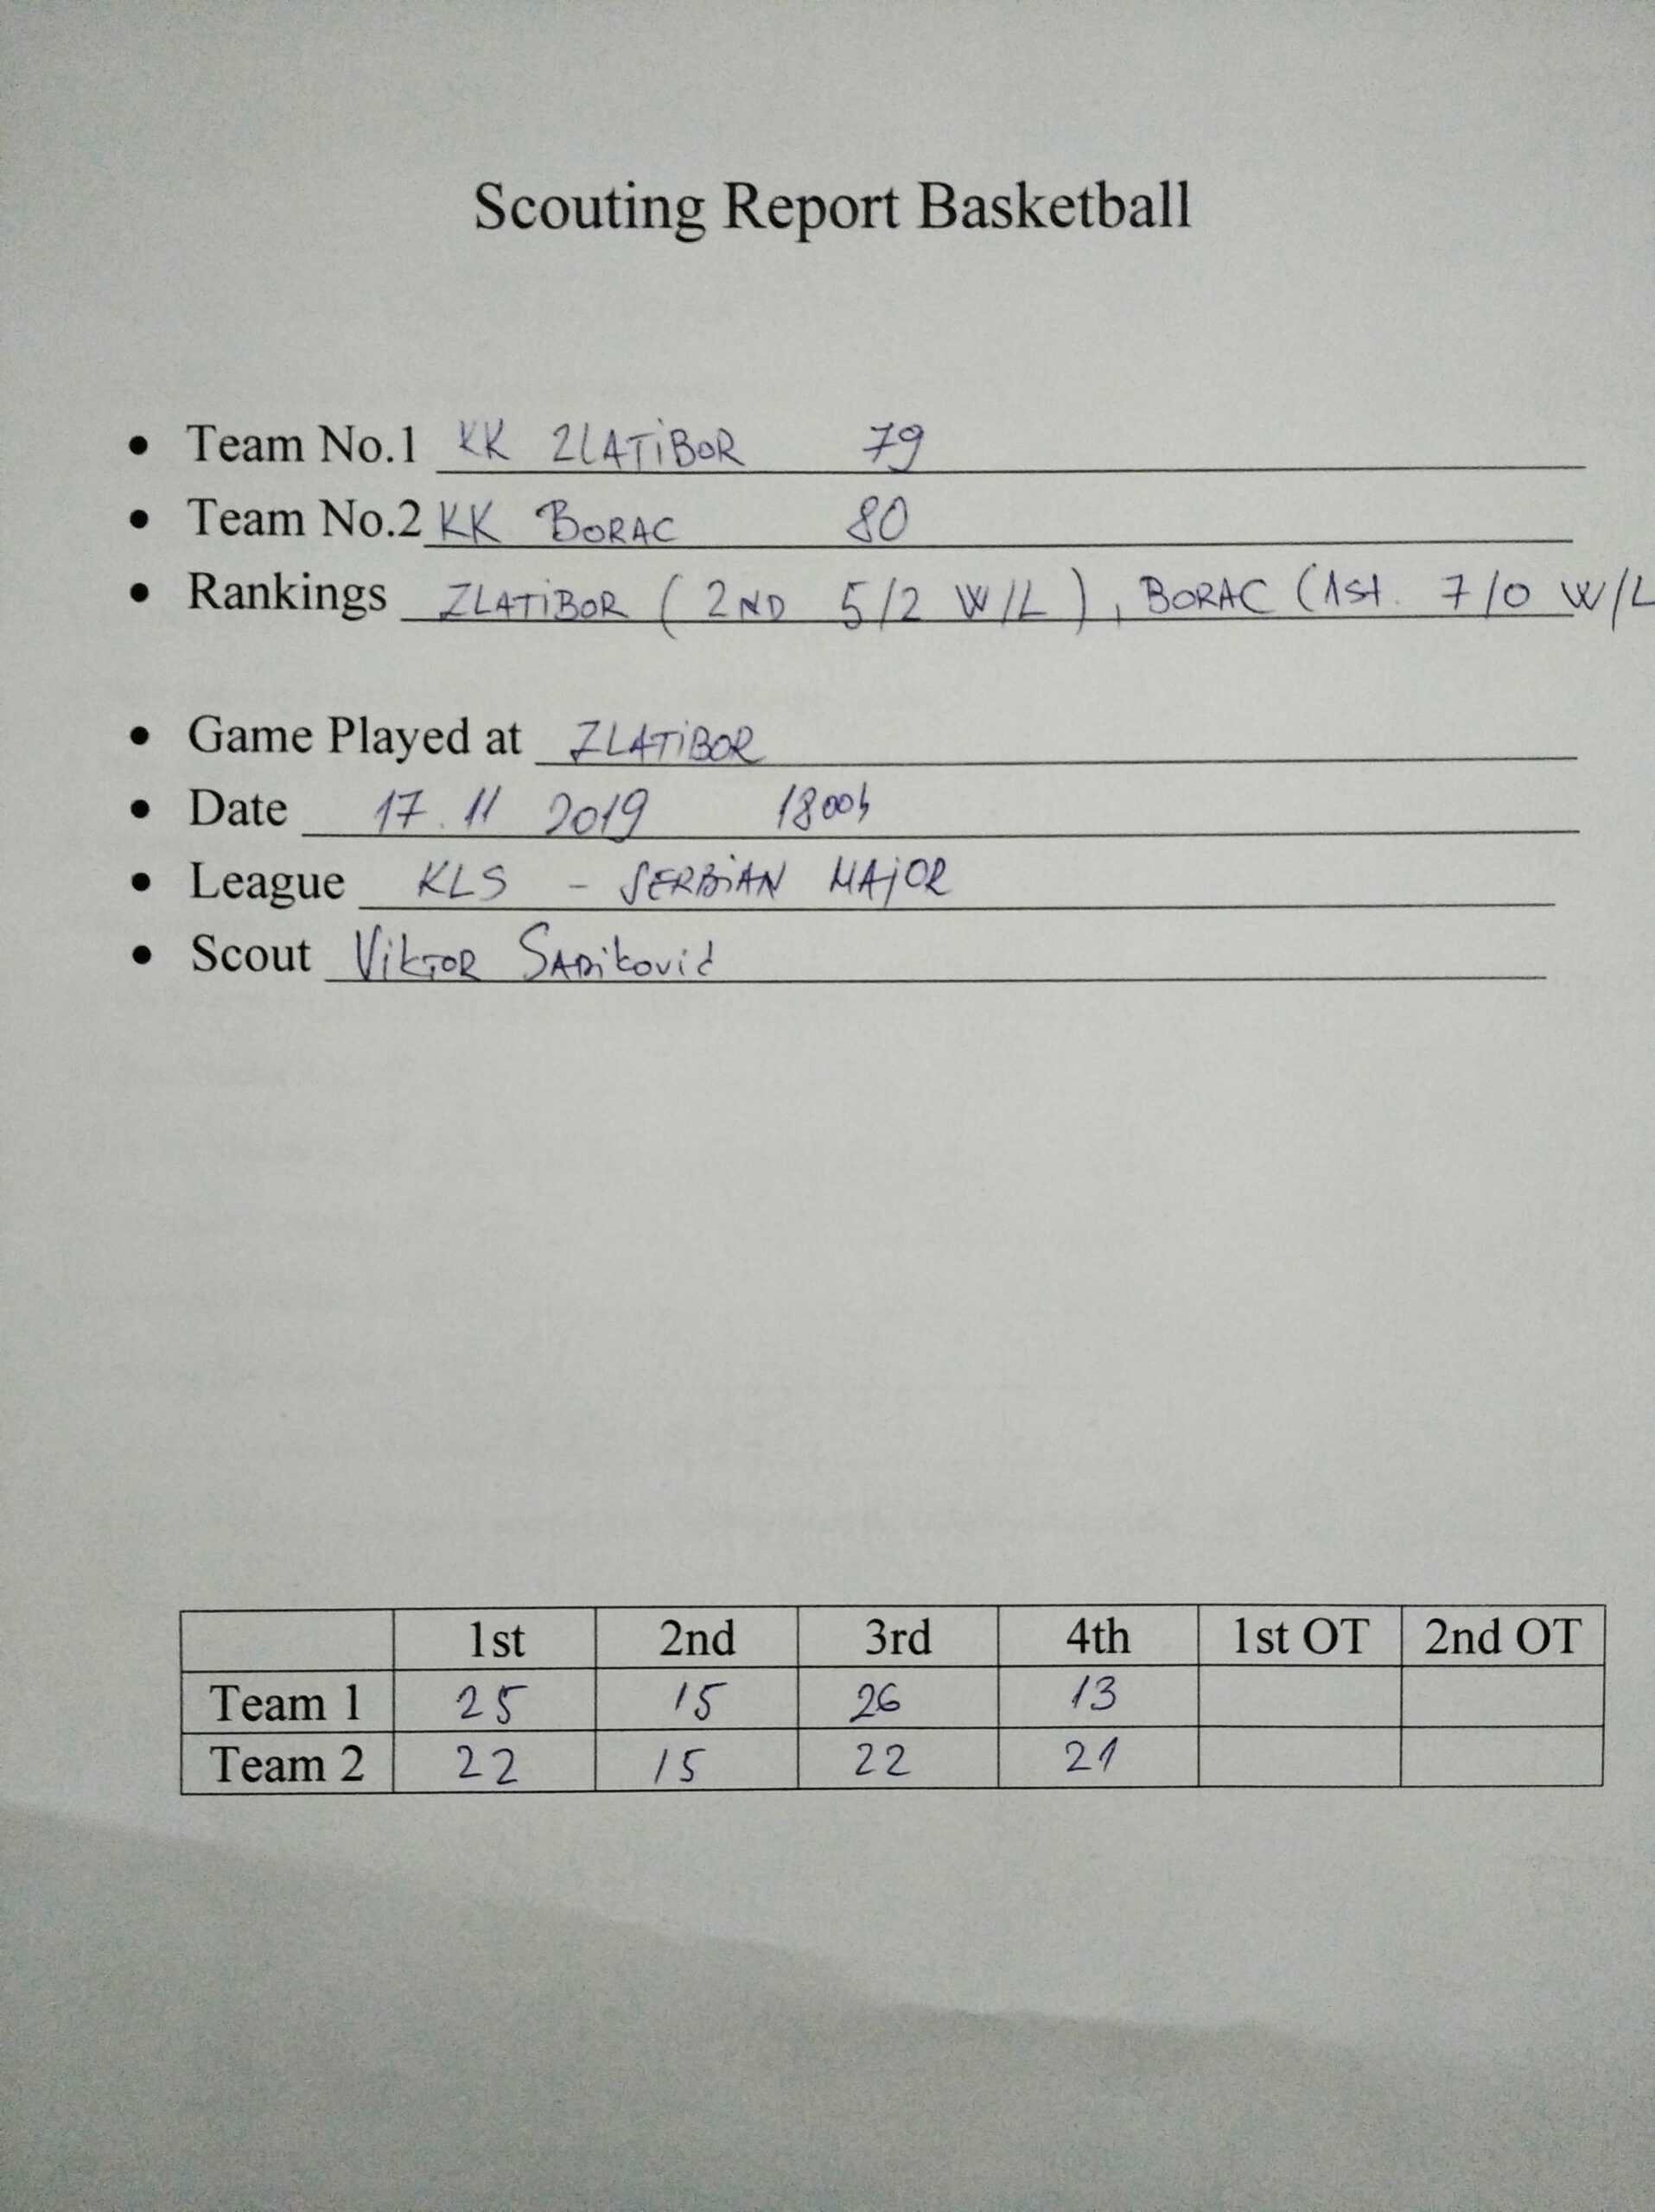 Scouting Report Basketball
• Team No.1 KK ZLATiBOR 79
• Team No.2 KK BORAC 80
• Rankings ZLATiBOR ( 2ND 5/2 W/L ) , BORAC (1st. 7/0 W/L
• Game Played at ZLATiBOR
• Date 17. 11 2019 1800h
• League KLS - SERBiAN MAjOR
• Scout ViKTOR SADiković
1st 2nd 3rd 4th 1st OT 2nd OT
Team 1 25 15 26 13
Team 2 22 15 22 21